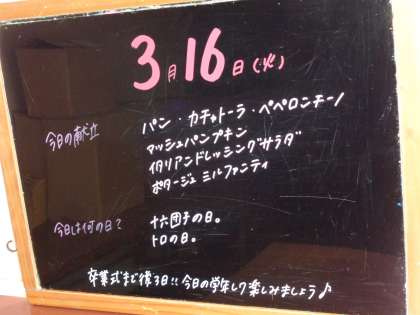 3月16日(火)
今日の献立
パン・カチャトーラ・ペペロンチーノ
マッシュパンプキン
イタリアンドレッシングサラダ
ポタージュ ミルファンティ
今日は何の日?
十六団子の日。
トロの日。
卒業式まで後3日!!今日の学年レク楽しみましょう♪